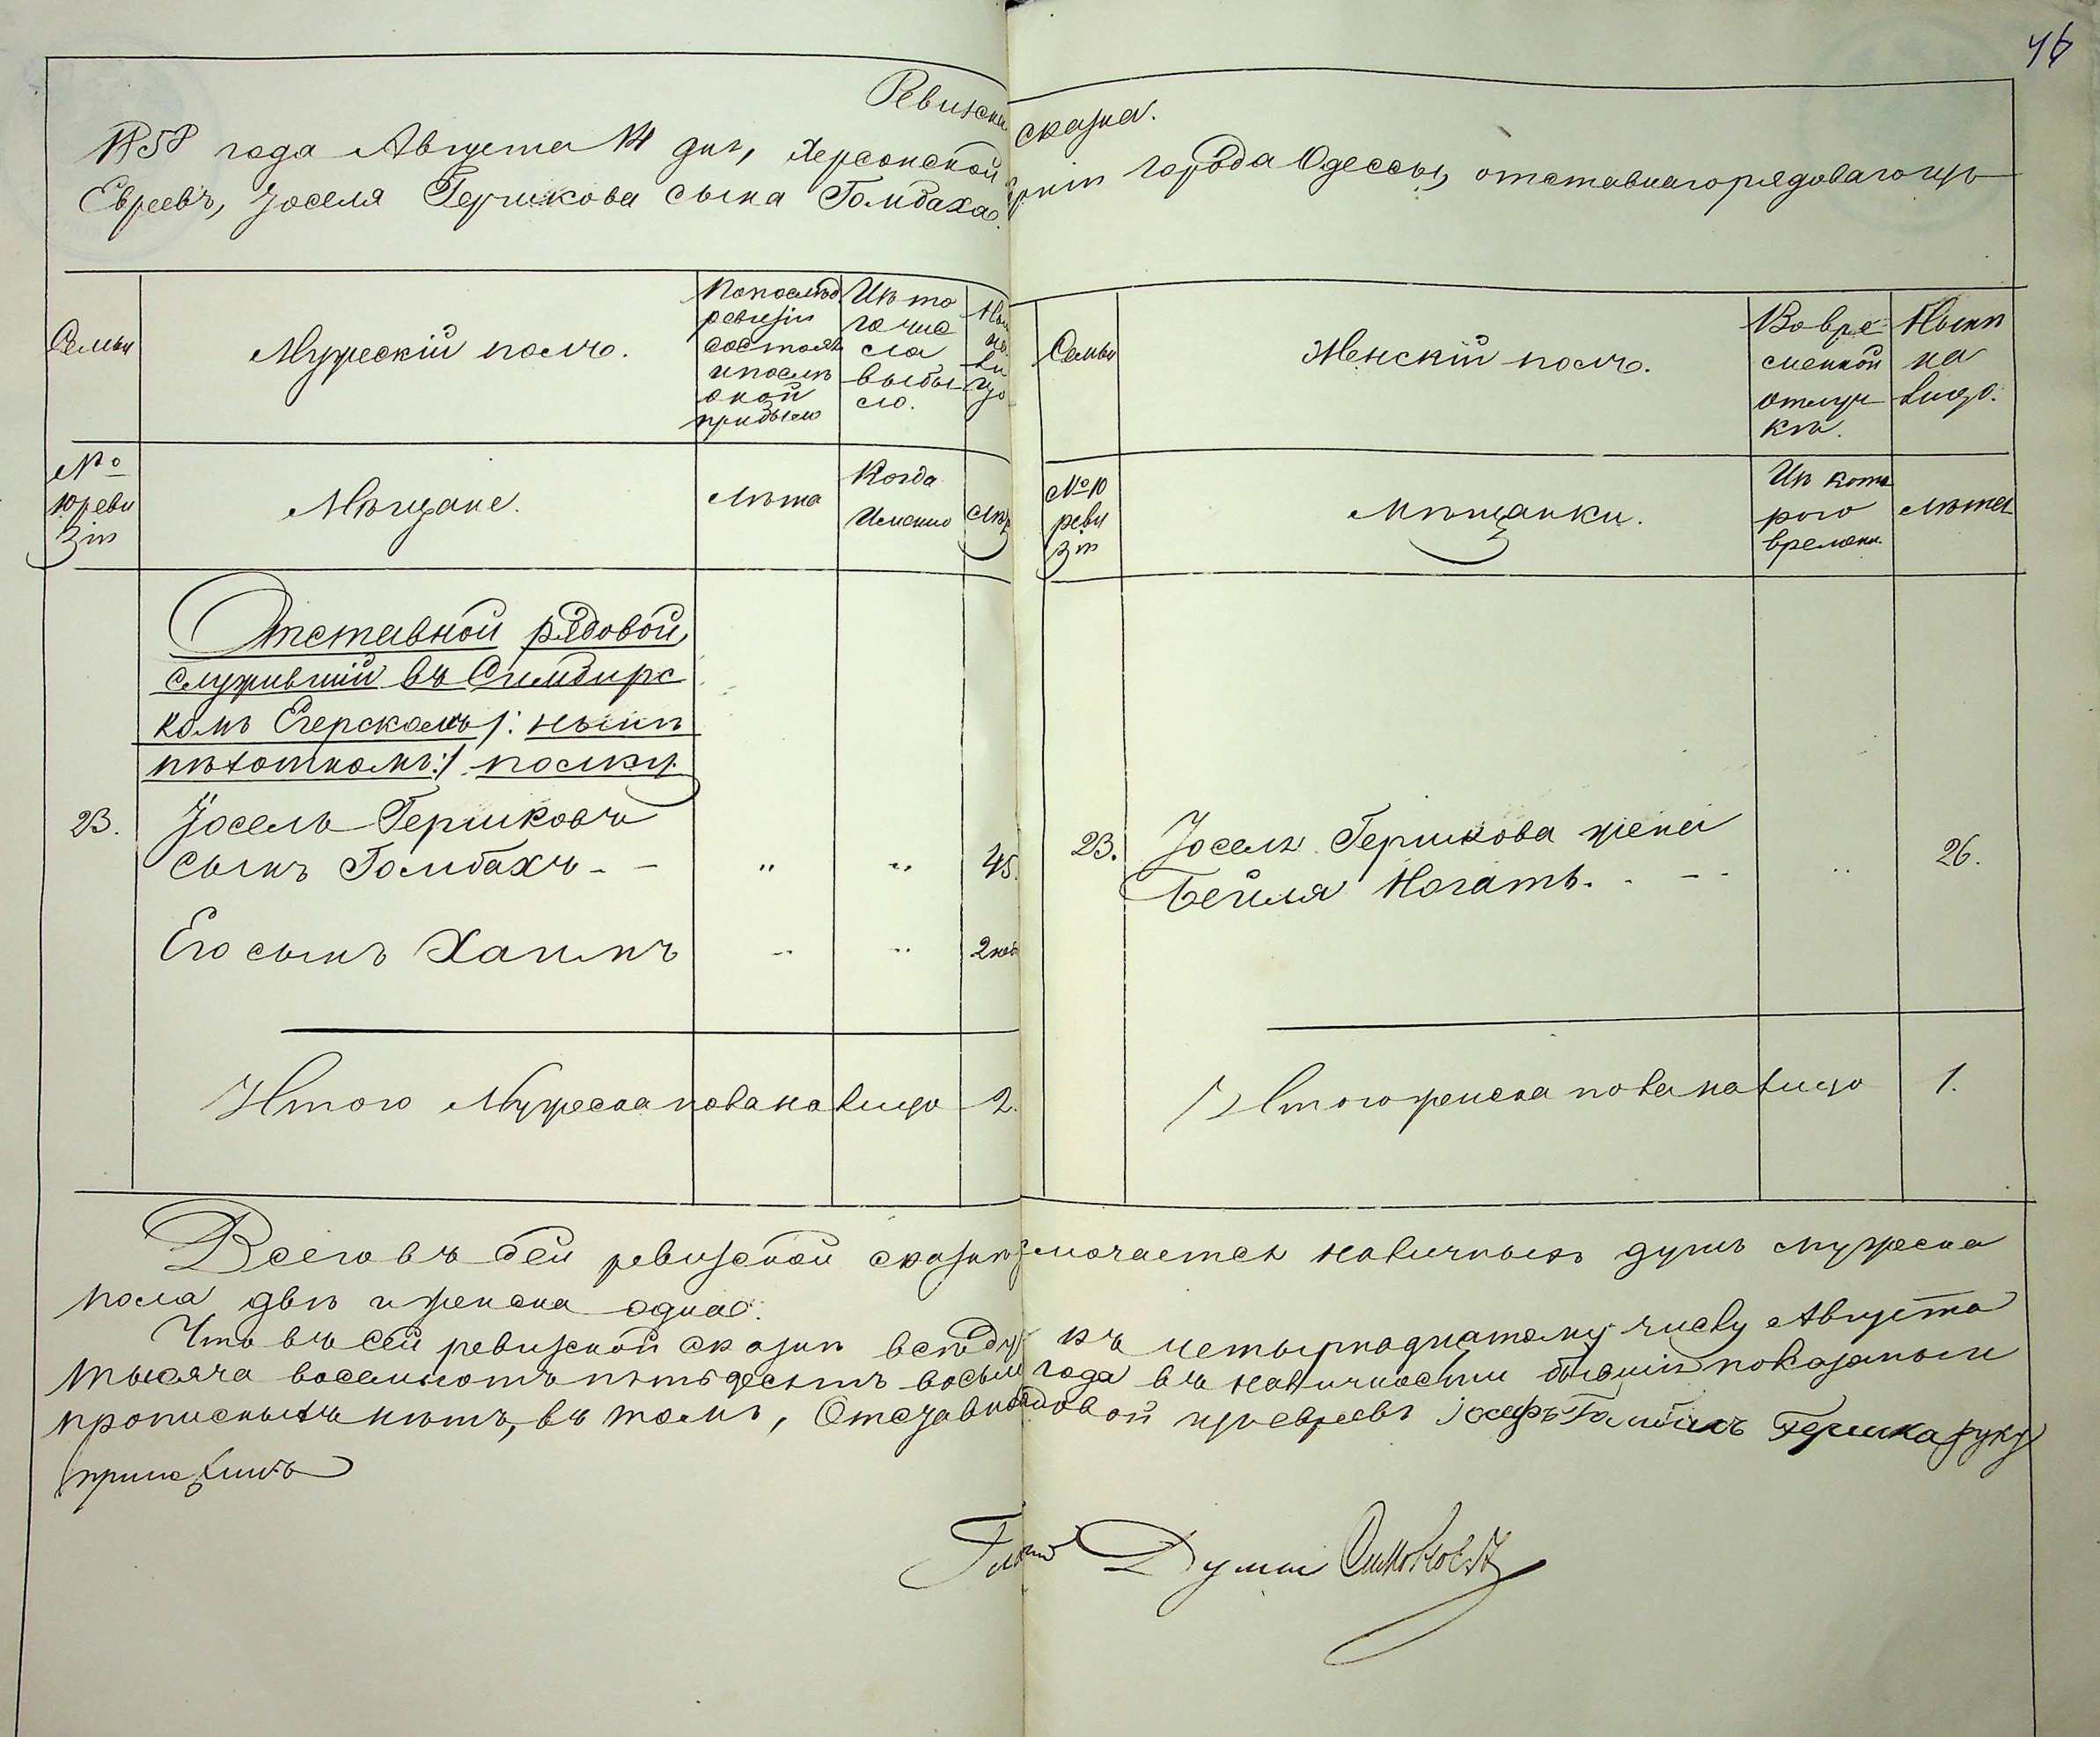 46
Ревизска сказка.
1858 года Августа 14 дня, Херсонской рніи города Одессы, отставнаго рядоваго изъ
Евреевъ, Іоселя Гершкова сына Гомбаха.
Семьи
Мужескій полъ.
По послѣд.
ревизіи
состояло
и послѣ
оной
прибыло
Изъ то
го чис
ла
выбы
ло.
Ны
нѣ
на
ли
цо
Семьи
Женскій полъ.
Во вре
менной
отлуч
кѣ.
Нынѣ
на
лицо.
№
10 реви
зіи
Мѣщане.
Лѣта
Когда
Именно
Лѣт
№ 10
реви
зіи
Мѣщанки.
Изъ кото
раго
времени.
Лѣта
Отставной рядовой,
служившій въ Симбирс
комъ Егерскомъ /: нынѣ
пѣхотномъ :/ полку.
23. Іосель Гершковъ
сынъ Гомбахъ - - " " 45.
Его сынъ Хаимъ " " 2 нед
Итого Мужеска пола на лицо 2.
23. Іоселя Гершкова жена
Бейля Ногатъ. - - - " 26.
Итого женска пола на лицо 1.
Всего въ сей ревизской сказкѣ значается наличныхъ душъ мужеска
пола двѣ и женска одна.
Что въ сей ревизской сказкѣ всѣ ду къ четырнадцатому числу Августа
тысяча восемьсотъ пятьдесятъ восьм года въ наличности бывшіе показаны и
прописныхъ нѣтъ, въ томъ, Отставно рядовой изъ евреевъ іосифъ Гамбахъ Гершка руку
приложилъ
Глас Думы Симоновъ